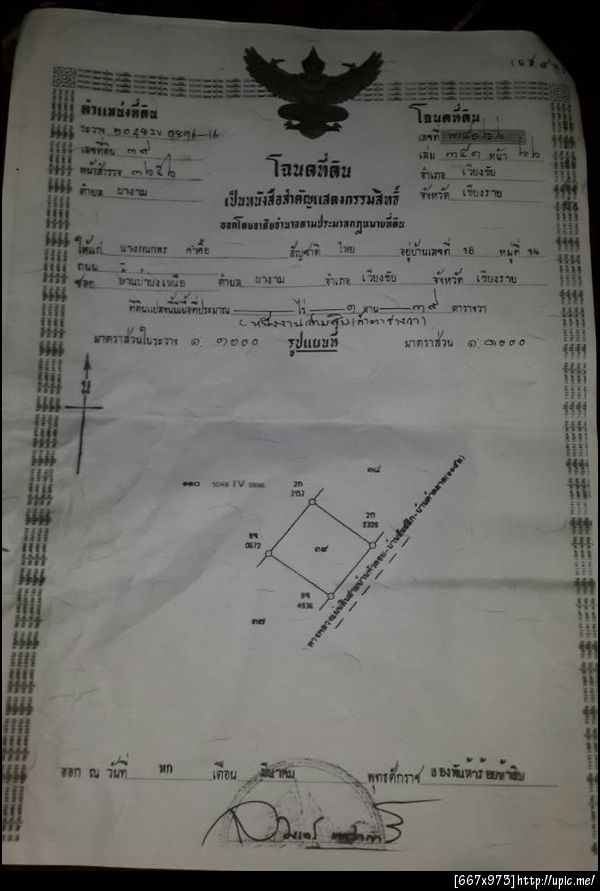 (น.ส.๔ )
ตำแหน่งที่ดิน
ระวาง ๕๐๔๘ IV ๐๘๙๖-๑๖
เลขที่ดิน ๓๙
หน้าสำรวจ ๓๖๕๖
ตำบล ผางาม
โฉนดที่ดิน
เลขที่ ๓๕๐๖๖
เล่ม ๓๕๑ หน้า ๖๖
อำเภอ เวียงชัย
จังหวัด เชียงราย
โฉนดที่ดิน
เป็นหนังสือสำคัญแสดงกรรมสิทธิ์
ออกโดยอาศัยอำนาจตามประมวลกฎหมายที่ดิน
ให้แก่ สัญชาติ ไทย อยู่บ้านเลขที่ 18 หมู่ที่ 14
ถนน
ซอย ตำบล ผางาม อำเภอ เวียงชัย จังหวัด เชียงราย
ที่ดินแปลงนี้มีเนื้อที่ประมาณ ไร่ ๑ งาน ๓๙ ตารางวา
(หนึ่งงานสามสิบเก้าตารางวา)
มาตราส่วนในระวาง ๑:๑๐๐๐ รูปแผนที่ มาตราส่วน ๑:๑๐๐๐
น
๑๑๐ 5048 IV 0896
๓๘
2ก
2157
2ก
2328
อจ
0672
๓๙
อจ
4936
๓๗
ออก ณ วันที่ หก เดือน มีนาคม พุทธศักราช สองพันห้าร้อยห้าสิบ
[667x973]http://upic.me/